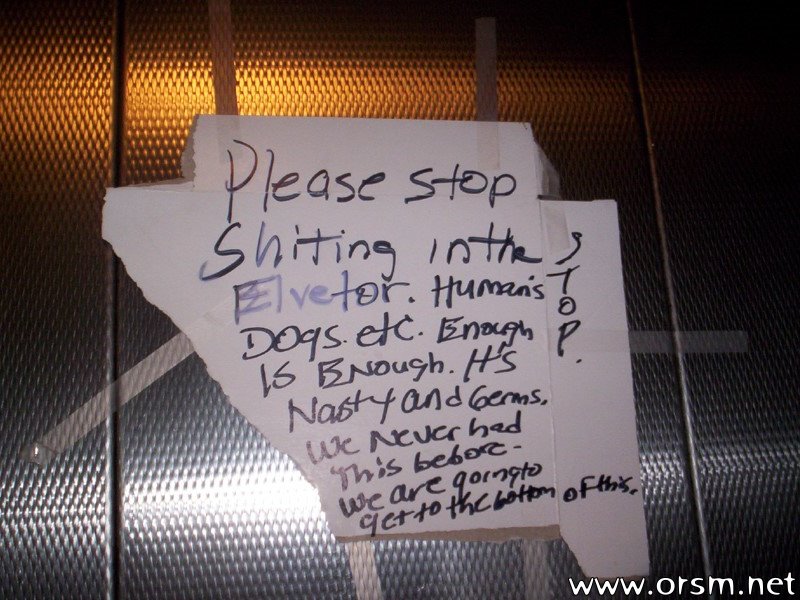 Please stop
Shiting in the
Elvetor. Human's
Dogs. etc. Enough
Is Enough. It's
Nasty and Germs.
We Never had
This before -
We are going to
get to the bottom of this.
STOP.
www.orsm.net